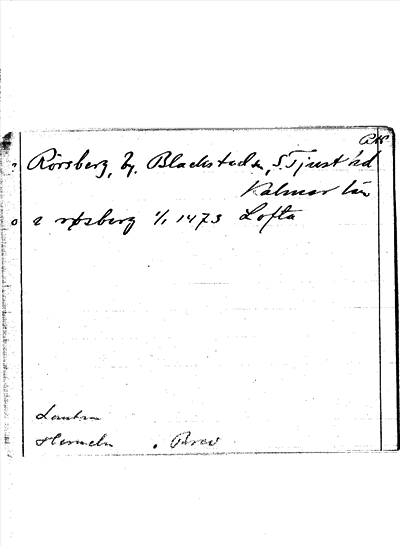 Rörsberg, by. Blackstads sn, S. Tjust hd
Kalmar län
a rørsberg 1/1 1473 Lofta
Hermelin . Brev